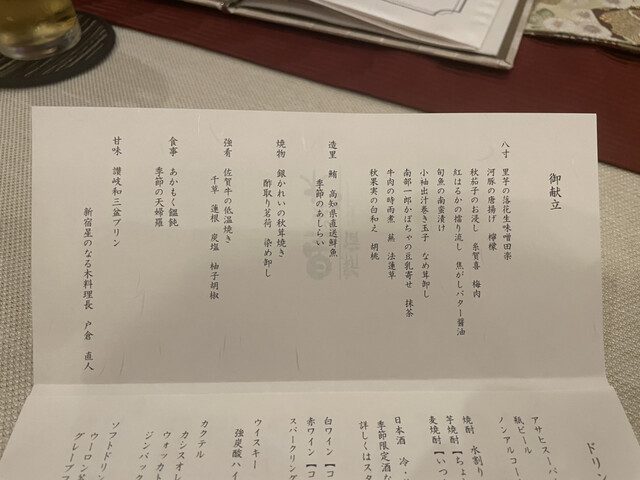 御献立
八寸　里芋の落花生味噌田楽
河豚の唐揚げ　檸檬
秋茄子のお浸し　糸賀喜　梅肉
紅はるかの擂り流し　焦がしバター醤油
旬魚の南蛮漬け
小袖出汁巻き玉子　なめ茸卸し
南部一郎かぼちゃの豆乳寄せ　抹茶
牛肉の時雨煮　蕪　法蓮草
秋果実の白和え　胡桃
造里　鮪　高知県直送鮮魚
季節のあしらい
焼物　銀かれいの秋茸焼き
酢取り茗荷　染め卸し
強肴　佐賀牛の低温焼き
千草　蓮根　炭塩　柚子胡椒
食事　あかもく饂飩
季節の天婦羅
甘味　讃岐和三盆プリン
新宿星のなる木料理長　戸倉　直人
ドリン
アサヒスーパ
瓶ビール
ノンアルコー
焼酎　水割り
芋焼酎【ちょ
麦焼酎【いつ
日本酒　冷・
季節限定酒な
詳しくはスタ
白ワイン【コ
赤ワイン【コ
スパークリング
ウイスキー
強炭酸ハイ
カクテル
カシスオレ
ウォッカト
ジンバック
ソフトドリン
ウーロン
グレープフ